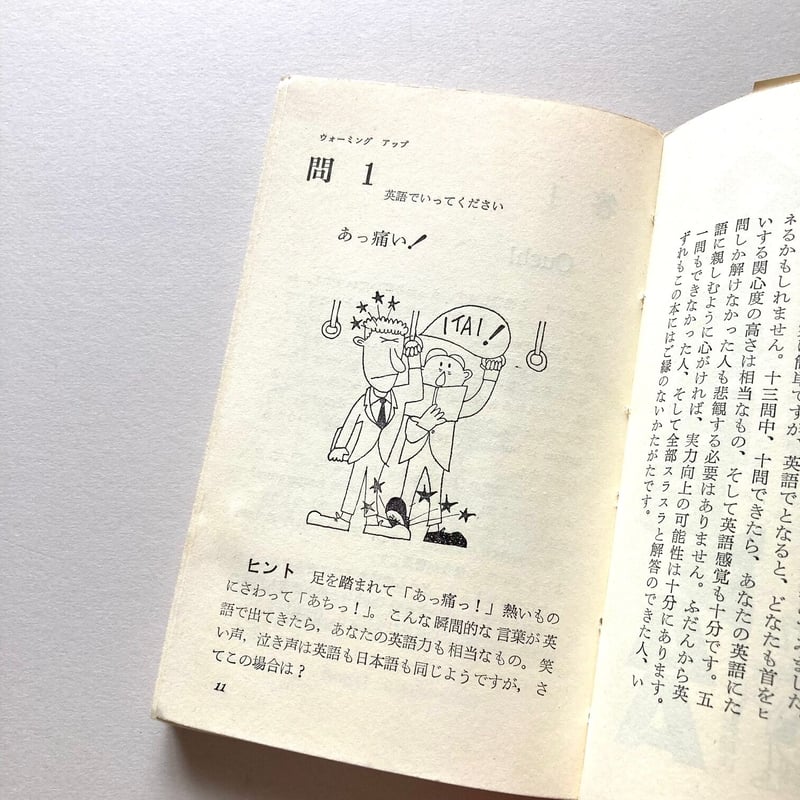 ウォーミング アップ
問 1
英語でいってください
あっ痛い!
ITAI!
ヒント 足を踏まれて「あっ痛っ！」熱いもの
にさわって「あちっ！」。こんな瞬間的な言葉が英
語で出てきたら，あなたの英語力も相当なもの。笑
い声，泣き声は英語も日本語も同じようですが，さ
てこの場合は？
11
簡単ですが、英語でとなると、どなたも首をヒ
ネるかもしれません。十三問中、十問できたら、あなたの英語にた
いする関心度の高さは相当なもの、そして英語感覚も十分です。五
問しか解けなかった人も悲観する必要はありません。ふだんから英
語に親しむように心がければ、実力向上の可能性は十分にあります。
一問もできなかった人、そして全部スラスラと解答のできた人、い
ずれもこの本にはご縁のないかたがたです。